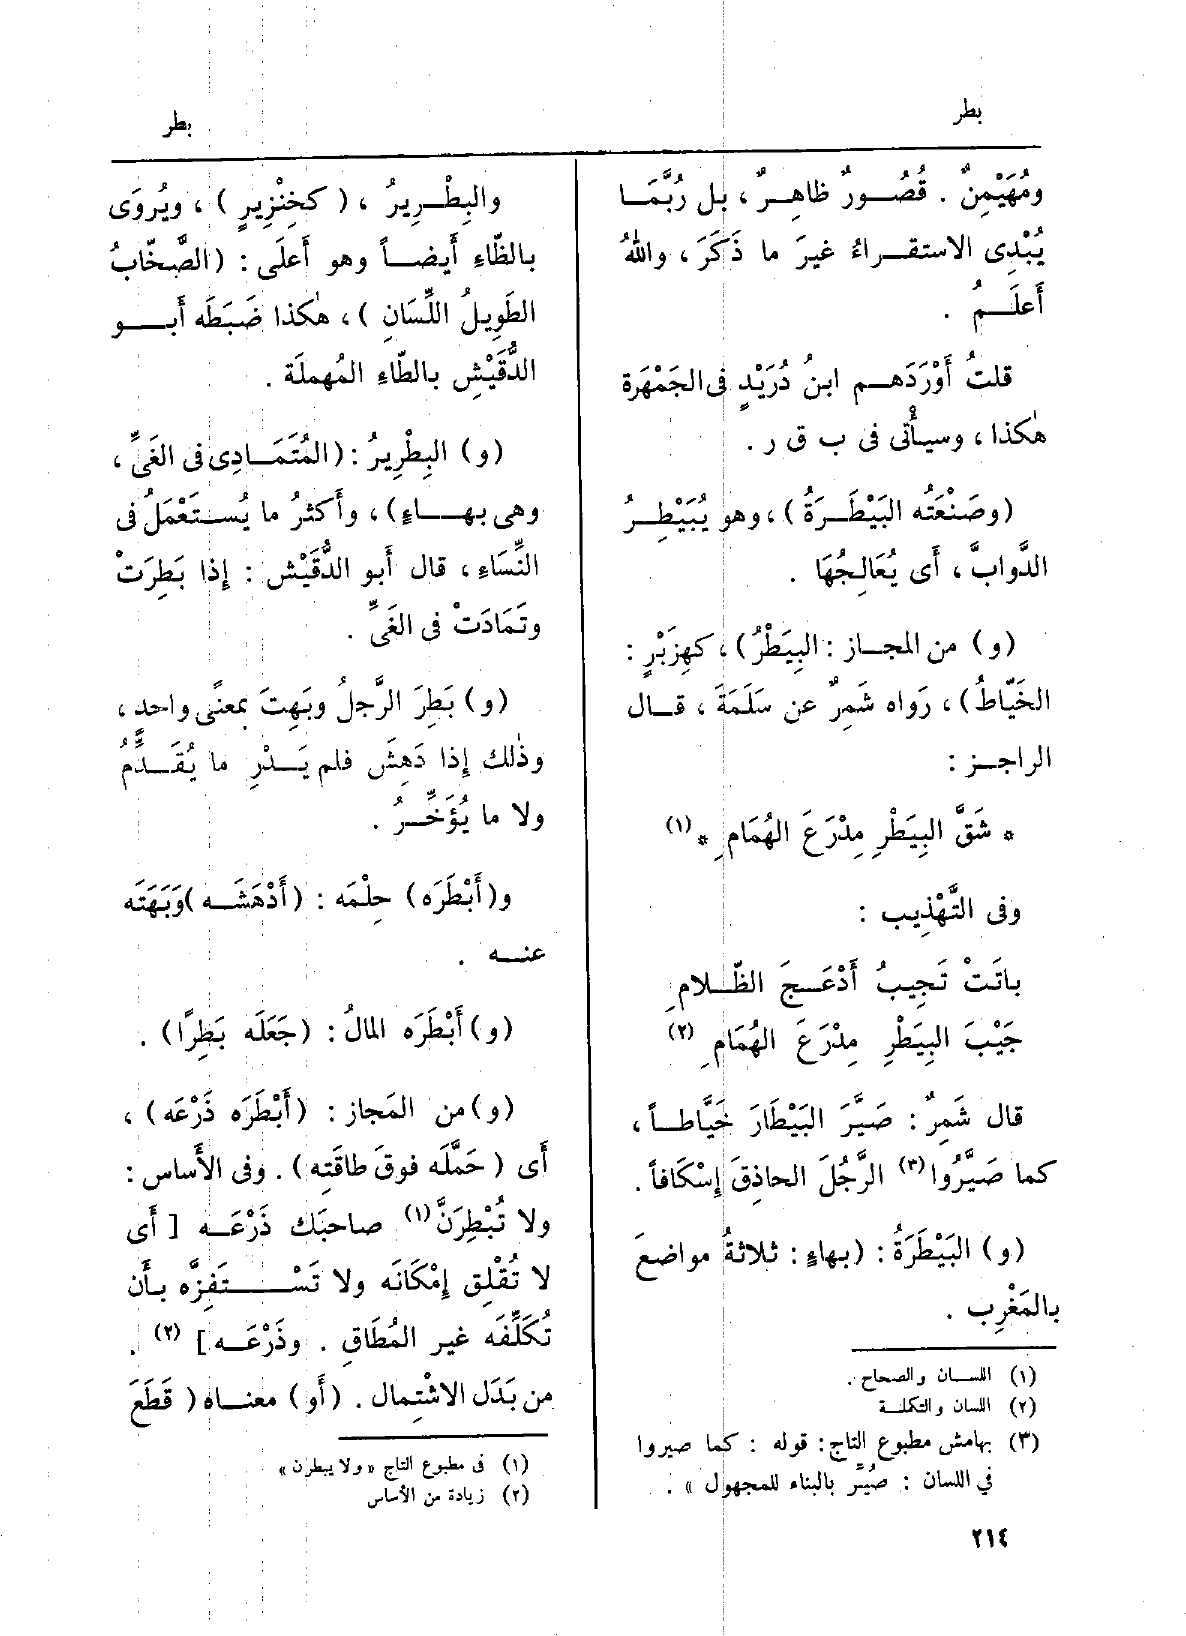 بطر
بطر
ومُهَيْمِنٌ . قُصُورٌ ظاهِرٌ ، بل رُبَّمَا
يُبْدِى الاستقراءُ غيرَ ما ذَكَرَ ، واللهُ
أَعلَمُ .
قلتُ أَوْرَدَهم ابنُ دُرَيْدٍ فى الجَمْهَرة
هٰكذا ، وسيأْتى فى ب ق ر .
(وصَنْعَتُه البَيْطَرَةُ) ، وهو يُبَيْطِرُ
الدَّوابَّ ، أَى يُعَالِجُهَا .
(و) من المجاز : البِيَطْرُ) ، كهِزَبْرٍ :
الخَيّاطُ) ، رَواه شَمِرٌ عن سَلَمَةَ ، قال
الراجز :
* شَقَّ البِيَطْرِ مِدْرَعَ الهُمَامِ * (١)
وفى التَّهْذِيب :
باتَتْ تَجِيبُ أَدْعَجَ الظّلامِ
جَيْبَ البِيَطْرِ مِدْرَعَ الهُمَامِ (٢)
قال شَمِرٌ : صَيَّرَ البَيْطَارَ خَيَّاطاً ،
كما صَيَّرُوا (٣) الرَّجُلَ الحاذِقَ إِسْكَافاً .
(و) البَيْطَرَةُ : (بهاءٍ : ثلاثةُ مواضعَ
بالمَغْرِب .
(١) اللسان والصحاح .
(٢) اللسان والتكلة
(٣) بهامش مطبوع التاج : قوله : كما صيروا
في اللسان : صُيِّر بالبناء للمجهول » .
٢١٤
والبِطْرِيرُ ، ( كخِنْزِيرٍ ) ، ويُروَى
بالظّاءِ أَيضاً وهو أَعلَى : (الصَّخّابُ
الطَوِيلُ اللِّسَانِ ) ، هٰكذا ضَبَطَه أَبو
الدُّقَيْشِ بالطّاءِ المُهملَة .
(و) البِطْرِيرُ : (المُتَمَادِى فى الغَىِّ ،
وهى بهاءٍ) ، وأَكثرُ ما يُستَعْمَلُ فى
النِّسَاءِ ، قال أَبو الدُّقَيْش : إِذا بَطِرَتْ
وتَمَادَتْ فى الغَىِّ .
(و) بَطِرَ الرَّجلُ وبَهِتَ بمعنًى واحدٍ ،
وذٰلك إِذا دَهِشَ فلم يَدْرِ ما يُقَدِّمُ
ولا ما يُؤَخِّرُ .
و(أَبْطَرَه) حِلْمَه : (أَدْهَشَه) وَبَهَتَه
عنه .
(و) أَبْطَرَه المالُ : (جَعَلَه بَطِرًا) .
(و) من المَجاز : (أَبْطَرَه ذَرْعَه) ،
أَى ( حَمَّلَه فوقَ طاقَتِه ) . وفى الأَساس :
ولا تُبْطِرَنَّ (١) صاحبَك ذَرْعَه [ أَى
لا تُقْلِق إِمْكَانَه ولا تَسْتَفِزَّه بأَن
تُكَلِّفَه غير المُطَاقِ . وذَرْعَه ] (٢) .
من بَدَل الاشْتِمال . (أَو) معناه ( قَطَعَ
(١) فى مطبوع التاج « ولا يبطرن »
(٢) زيادة من الأساس